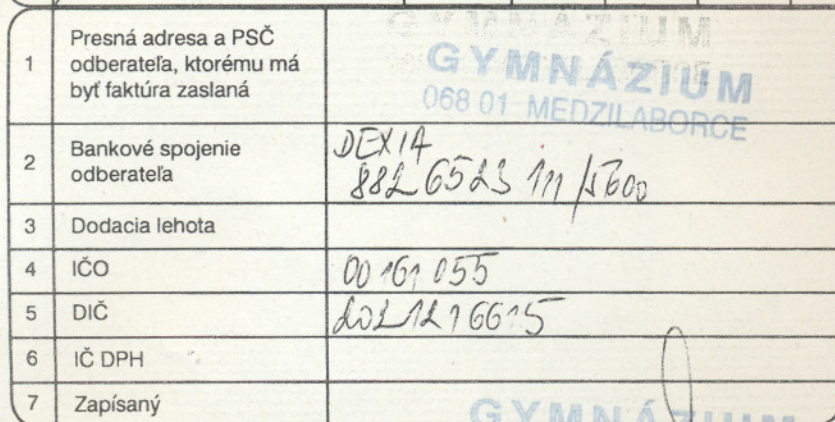 GYMNÁZIUM
1 Presná adresa a PSČ
odberateľa, ktorému má
byť faktúra zaslaná
GYMNÁZIUM
068 01 MEDZILABORCE
2 Bankové spojenie
odberateľa
DEXIA
882 6523 111/5600
3 Dodacia lehota
4 IČO
00 161 055
5 DIČ
2021216615
6 IČ DPH
7 Zapísaný
GYMNÁZIUM